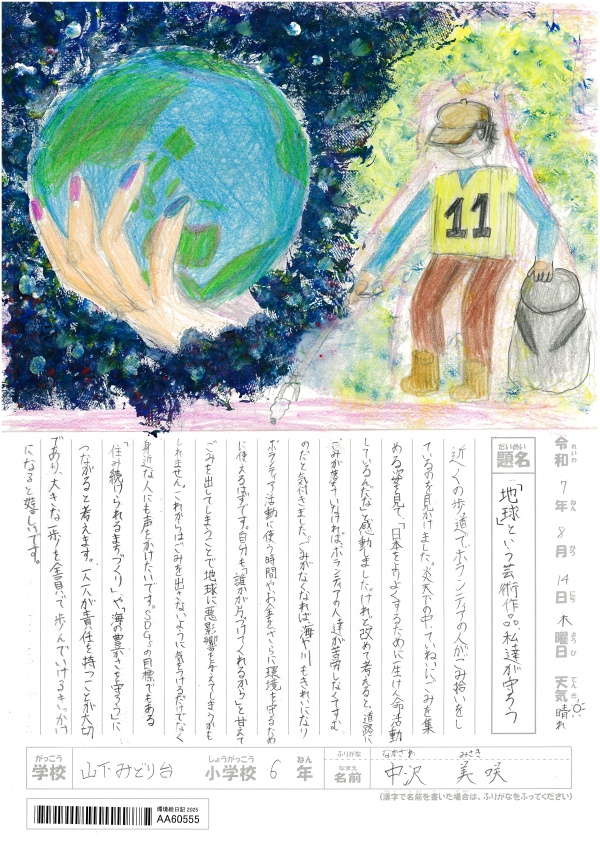 11
令和 れいわ 7 年 ねん 8 月 がつ 14 日 にち 木 曜日 ようび 天気 てんき 晴れ
だいめい
題名
「地球」という芸術作品、私達が守ろう
近くの歩道でボランティアの人がごみ拾いをし
ているのを見かけました。炎天下の中、ていねいにごみを集
める姿を見て、「日本をよりよくするために一生けん命活動
しているんだな」と感動しました。けれど改めて考えると、道路に
ごみが落ちていなければ、ボランティアの人達が苦労しなくてすむ
のだと気付きました。ごみがなくなれば、海や川もきれいになり
ボランティア活動に使う時間やお金をさらに環境を守るため
に使えるはずです。自分も「誰かが片づけてくれるから」と甘えて
ごみを出してしまうことで地球に悪影響を与えてしまうかも
しれません。これからはごみを出さないように気をつけるだけでなく
身近な人にも声をかけたいです。SDGsの目標でもある
「住み続けられるまちづくり」や「海の豊かさを守ろう」に
つながると考えます。一人一人が責任を持つことが大切
であり、大きな一歩を全員で歩んでいけるきっかけ
になると嬉しいです。
がっこう
学校
山下みどり台
しょうがっこう
小学校
6
ねん
年
ふりがな
なまえ
名前
なかざわ みさき
中沢 美咲
(漢字で名前を書いた場合は、ふりがなをふってください)
環境絵日記 2025
AA60555